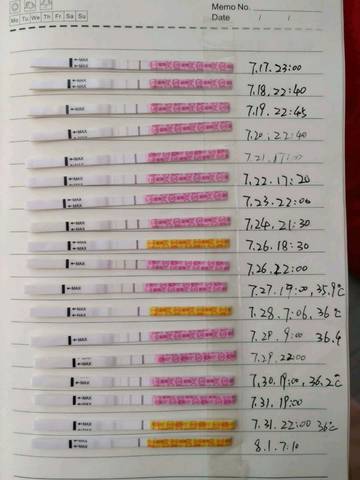 Memo No.
Mo Tu We Th Fr Sa Su
Date / /
←MAX 7.17.23:00
←MAX 7.18.22:40
←MAX 7.19.22:45
←MAX 7.20.22:40
←MAX 7.21.17:00
←MAX 7.22.17:20
←MAX 7.23.22:00
←MAX 7.24.21:30
←MAX 7.26.18:30
←MAX 7.26.22:00
←MAX 7.27.19:00,35.9℃
←MAX 7.28.7:06,36℃
←MAX 7.28.9:00 36.4
←MAX 7.29.22:00
←MAX 7.30.19:00,36.2℃
←MAX 7.31.19:00
←MAX 7.31.22:00 36℃
←MAX 8.1.7:10